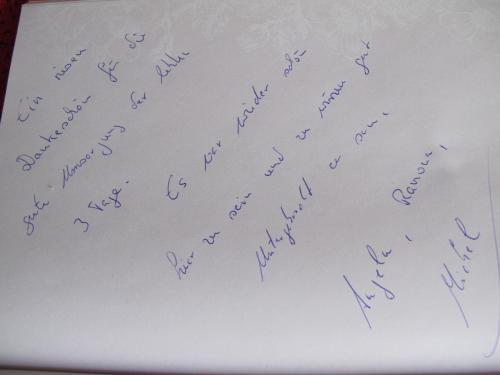 Ein riesen
Dankeschön für die
gute Umsorgung der letzten
3 Tage.
Es war wieder schön
hier zu sein und zu wissen gut
untergebracht zu sein.
Angela, Ramona,
Michel